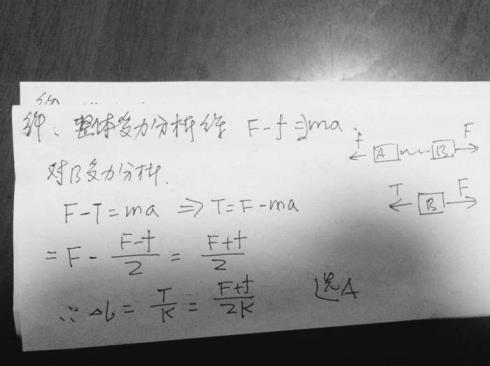 解、整体受力分析得 F-f=2ma.
f A B F
对B受力分析.
F-T=ma ⇒ T=F-ma
T B F
=F-\frac{F-f}{2}=\frac{F+f}{2}
∴ΔL=\frac{T}{K}=\frac{F+f}{2K} 选A